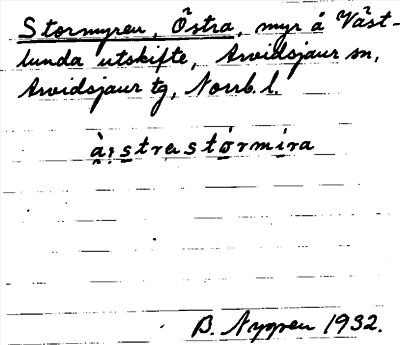 Stormyren, Östra, myr å Väst-
lunda utskifte, Arvidsjaur sn,
Arvidsjaur tg, Norrb. l.
B. Nygren 1932.